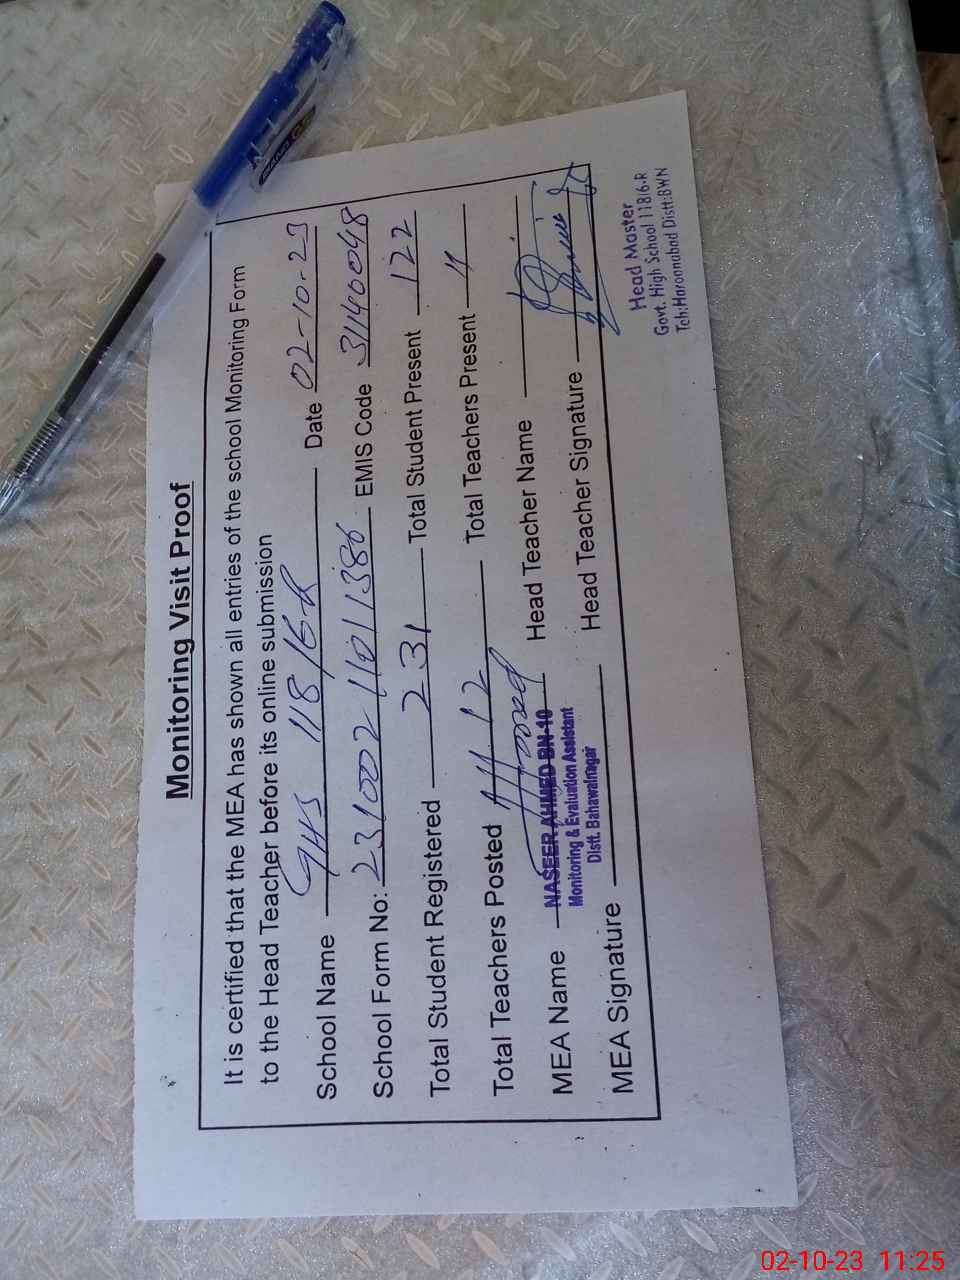 Monitoring Visit Proof
It is certified that the MEA has shown all entries of the school Monitoring Form
to the Head Teacher before its online submission
School Name GHS 118/6-R Date 02-10-23
School Form No: 231002 1101386 EMIS Code 31140048
Total Student Registered 231 Total Student Present 122
Total Teachers Posted 12 Total Teachers Present
MEA Name NASEER AHMED BN-10 Head Teacher Name
Monitoring & Evaluation Assistant
Distt. Bahawalnagar
MEA Signature Head Teacher Signature
Head Master
Govt. High School 118/6-R
Teh:Haroonabad Distt:BWN
02-10-23 11:25